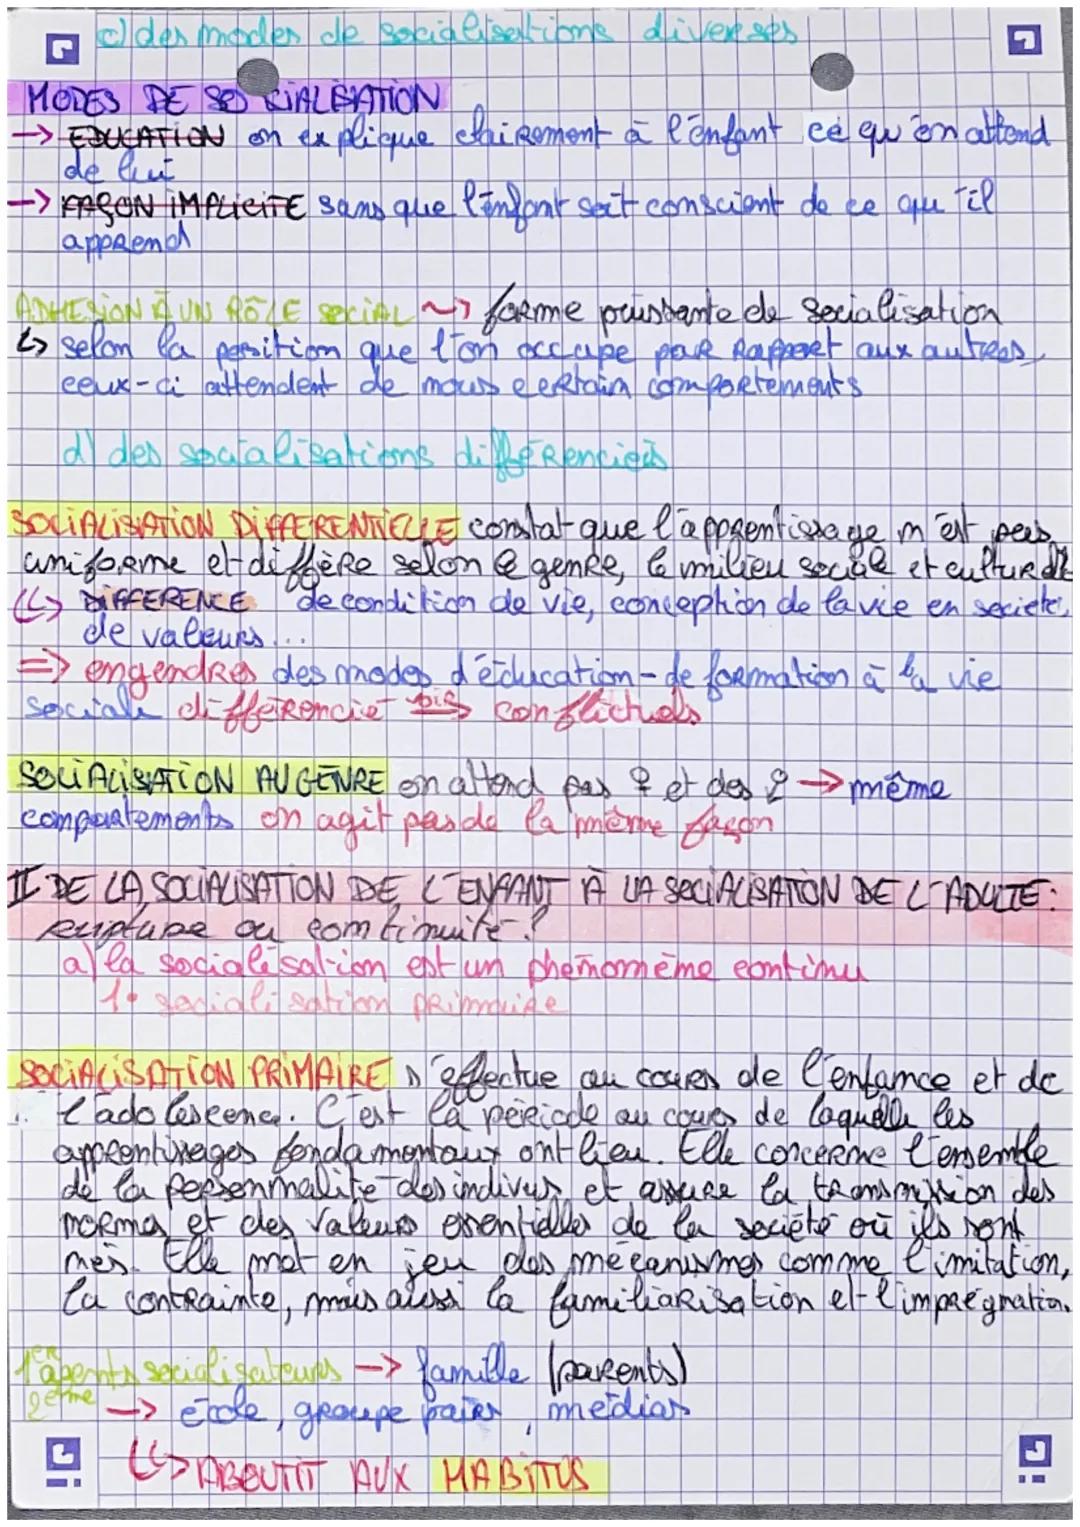 c) des modes de socialisations diverses
MODES DE SOCIALISATION
→ EDUCATION on explique clairement à l'enfant ce qu'on attend
de lui
→ FAÇON IMPLICITE sans que l'enfant soit conscient de ce qu'il
apprend
ADHESION À UN RÔLE SOCIAL ~> forme puissante de socialisation
↳ selon la position que l'on occupe par rapport aux autres,
ceux-ci attendent de nous certain comportements
d) des socialisations différenciés
SOCIALISATION DIFFERENTIELLE constat que l'apprentissage n'est pas
uniforme et diffère selon le genre, le milieu sociale et culturel
↳ DIFFERENCE de condition de vie, conception de la vie en societé,
de valeurs...
=> engendres des modes d'éducation - de formation à la vie
sociale différencié bis conflictuels
SOCIALISATION AU GENRE on attend pas ♀ et des ♀ → même
comportements on agit pas de la même façon
II DE LA SOCIALISATION DE L'ENFANT À LA SOCIALISATION DE L'ADULTE :
rupture ou continuité ?
a) la socialisation est un phénomème continu
1. socialisation primaire
SOCIALISATION PRIMAIRE s'effectue au cours de l'enfance et de
l'adolescence. C'est la période au cours de laquelle les
apprentissages fondamentaux ont lieu. Elle concerne l'ensemble
de la personnalité des indivus et assure la transmission des
normes et des valeurs essentielles de la société où ils sont
nés. Elle met en jeu des mécanismes comme l'imitation,
la contrainte, mais aussi la familiarisation et l'imprégnation.
1er agents socialisateurs → famille (parents)
2ème → école, groupe paires, médias
↳ ABOUTIT AUX HABITUS